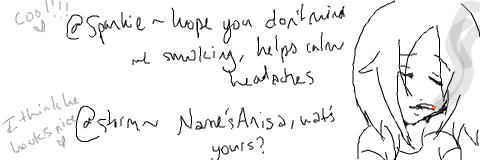 COOl!!!!
@Sparkie ~ hope you don't mind
me smoking, helps calm
headaches
I think he
looks nice
@storm~ Name's Anisa, wat's
yours?